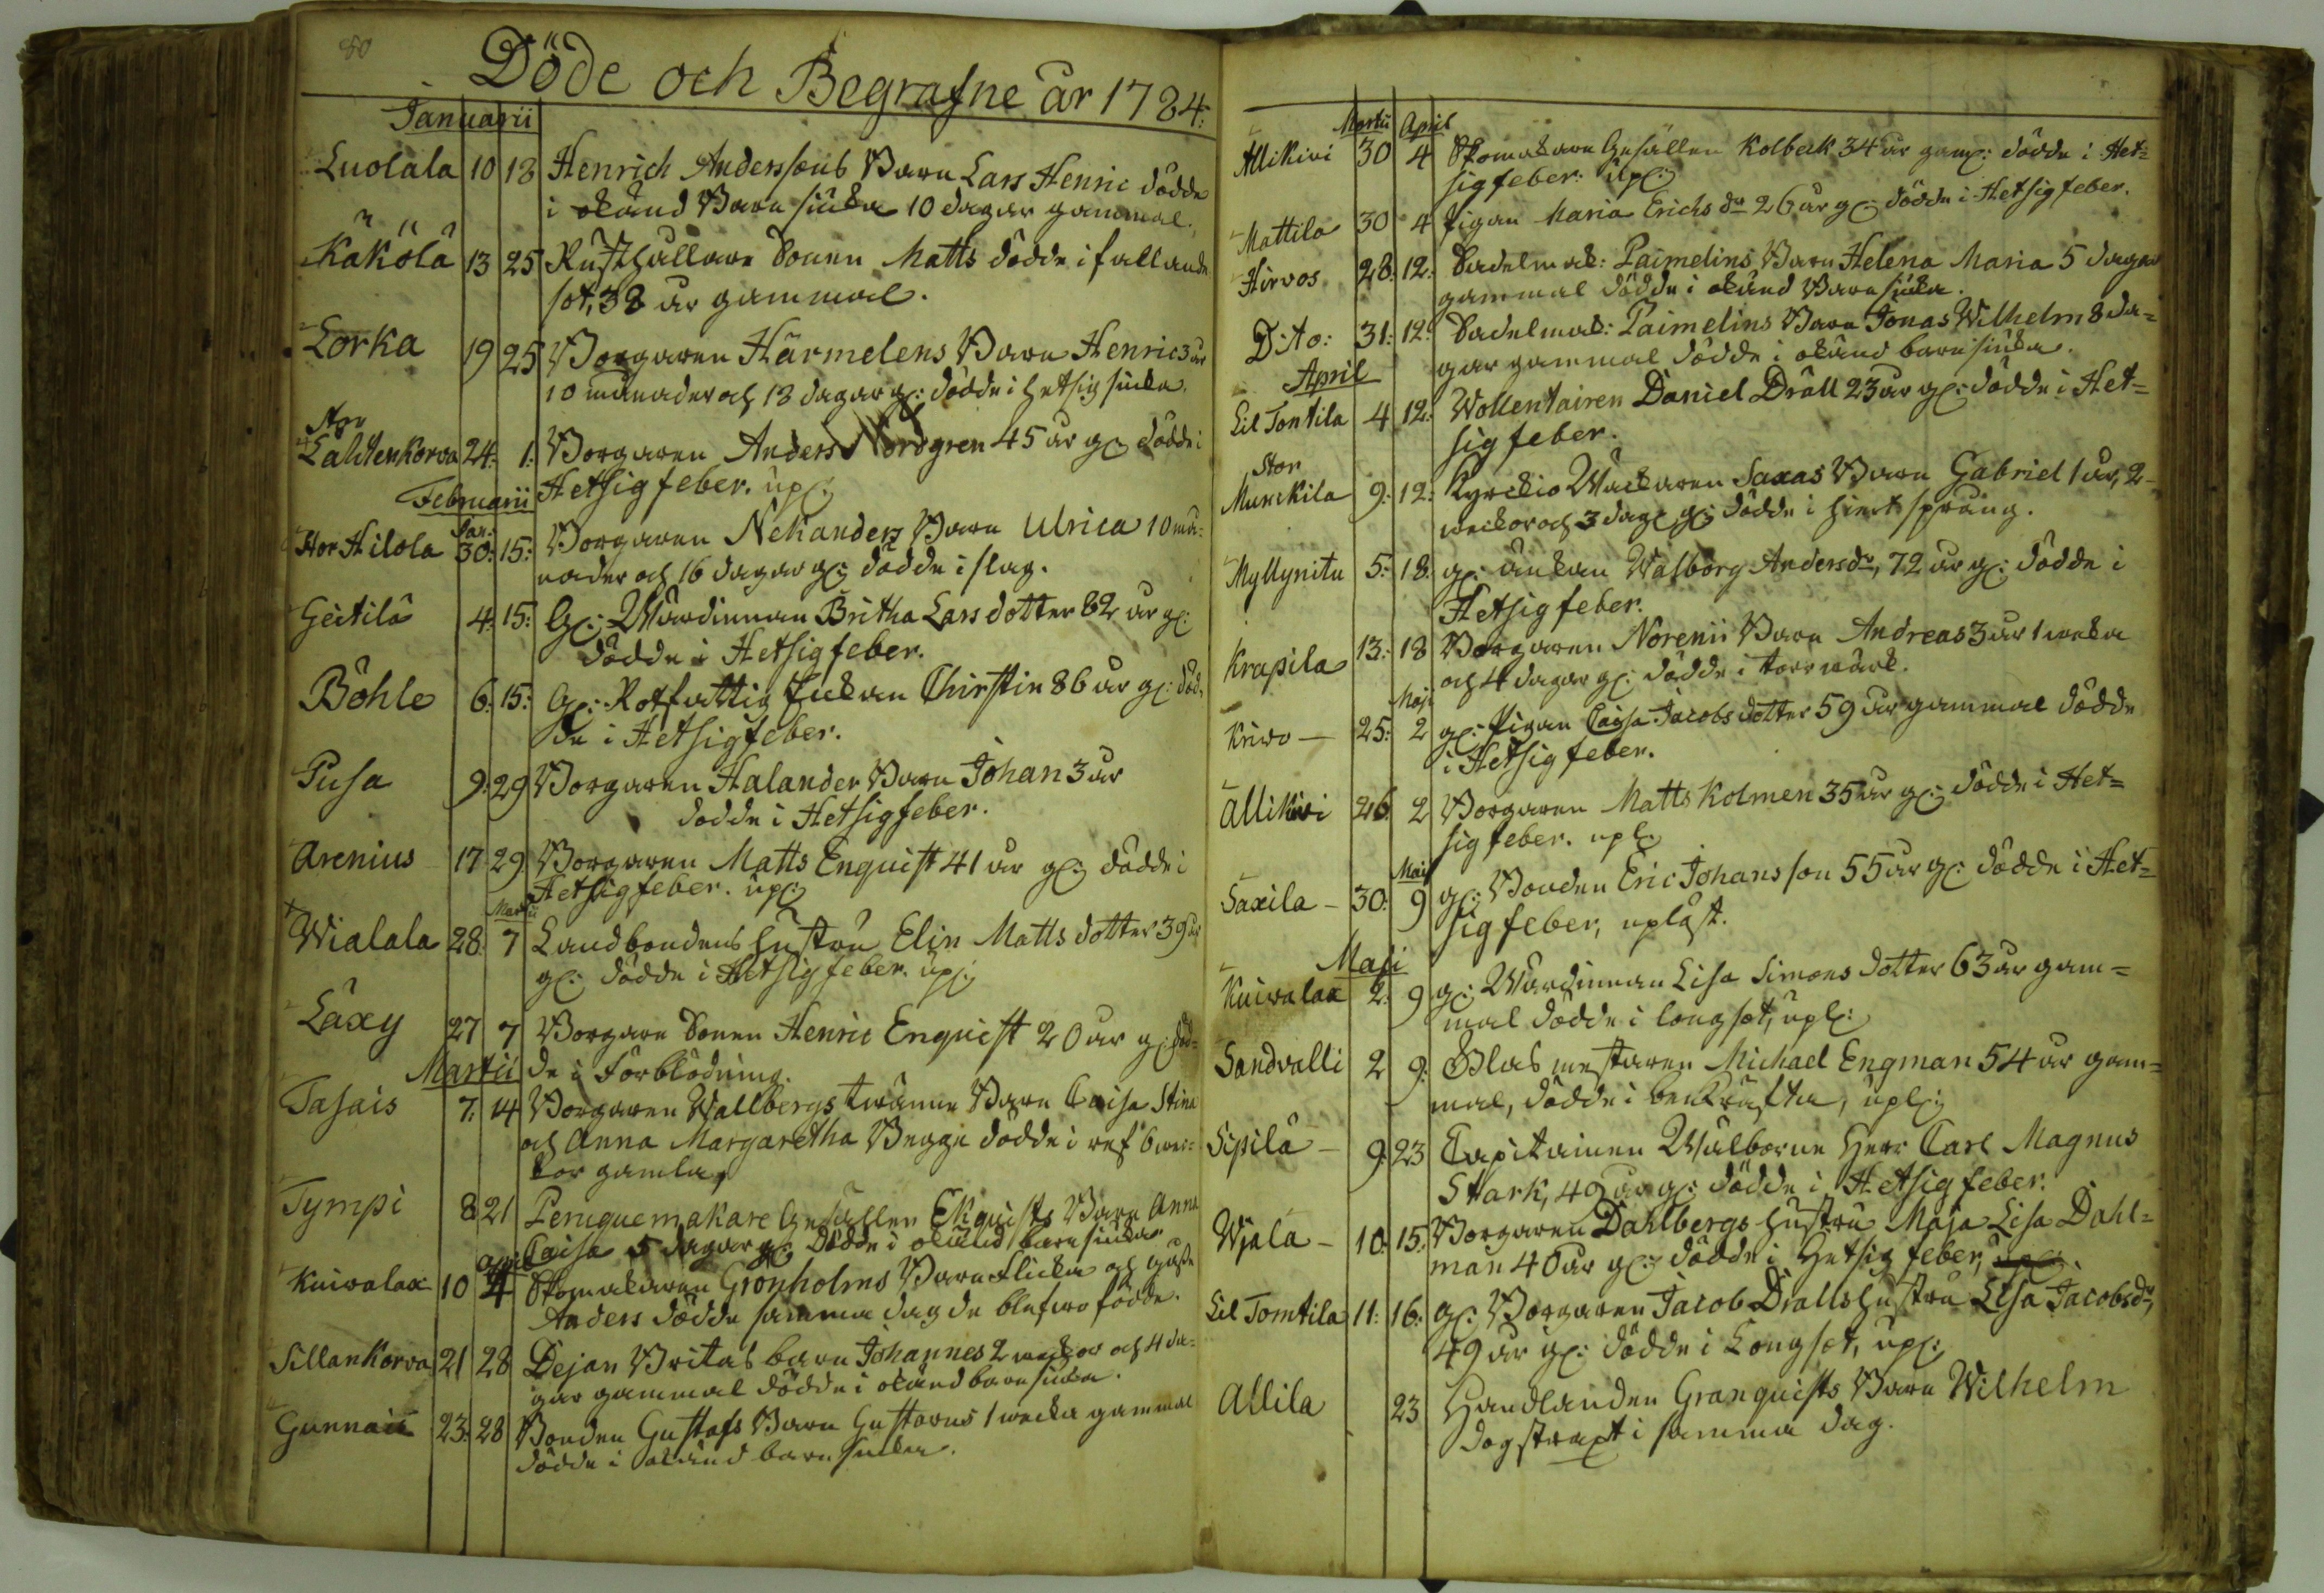 80
Döde och Begrafne år 1784:
Januarii
Luolala 10 18 Henrich Anderssons Barn Lars Henric dödde
i okänd Barn siuka 10 dagar gammal.
Käkölä 13 25 Rusthållare Sonen Matts dödde i fallande
sot, 38 år gammal.
Lorka 19 25 Borgaren Härmelens Barn Henric 3 år
10 månader och 13 dagar gl: dödde i hetsig siuka.
Stor
Lähtenkorva 24: 1: Borgaren Anders Nordgren 45 år gl: dödde i
Hetsig feber. upl:
Februarii
Jan:
Stor Hilola 30: 15: Borgaren Nekanders Barn Ulrica 10 må-
nader och 16 dagar gl: dödde i slag.
Geitilä 4: 15: Gl: Wärdinnan Britha Larsdotter 82 år gl:
dödde i Hetsig feber.
Böhle 6: 15: Gl: Rotfattig Enkan Chirstin 86 år gl: död-
de i Hetsig feber.
Pusa 9: 29 Borgaren Halander Barn Johan 3 år
dödde i Hetsig feber.
Arenius 17 29 Borgaren Matts Enquist 41 år gl: dödde i
Hetsig feber. upl:
Martii
Wialala 28: 7 Landbondens hustru Elin Matts dotter 39 år
gl: dödde i Hetsig feber. upl:
Läxy 27 7 Borgare Sonen Henric Enquist 20 år gl: död-
Martii de i Förblödning.
Tasais 7: 14 Borgaren Wallbergs twänne Barn Caisa Stina
och Anna Margaretha Begge dödde i ref 6 wec-
kor gamla,
Tympi 8 21 Peruquemakare Gesällen Ekquists Barn Anna
Caisa 5 dagar gl: dödde i okänd barn siuka
April
Kuiwalax 10 4 Skomakaren Grönholms Barn flicka och gosse
Anders dödde samma dag de blefwo födde.
Sillankorva 21 28 Dejan Britas barn Johannes 2 weckor och 4 da-
gar gammal dödde i okänd barn siuka.
Gunnais 23: 28 Bonden Gustafs Barn Gustavus 1 wecka gammal
dödde i okänd barn siuka.
Martii April
Allikivi 30 4 Skomakare Gesällen Kolbeck 34 år gam: dödde i Het-
sig feber: upl:
Mattila 30 4 Pigan Maria Erichs dr 26 år gl: dödde i Hetsig feber.
Hirvos 28: 12: Sadelmak: Paimelins Barn Helena Maria 5 dagar
gammal dödde i okänd Barn siuka.
Dito: 31: 12: Sadelmak: Paimelins Barn Jonas Wilhelm 8 da-
gar gammal dödde i okänd barn siuka.
April
Lil Tontila 4 12: Wollentairen Daniel Dräll 23 år gl: dödde i Het-
sig feber.
Stor
Munckila 9: 12: Kyrckio Wäcktaren Saxas Barn Gabriel 1 år, 2
weckor och 3 dag: gl: dödde i hiert språng.
Myllynitu 5: 18: gl: änkan Walborg Andersdr, 72 år gl: dödde i
Hetsig feber.
Krapila 13: 18 Borgaren Norenii Barn Andreas 3 år 1 wecka
och 4 dagar gl: dödde i torrwärck.
Maji
Kriwo — 25: 2 gl: Pigan Caisa Jacobs dotter 59 år gammal dödde
i Hetsig feber.
Allikivi 26 2 Borgaren Matts Kolmen 35 år gl: dödde i Het-
sig feber. upl:
Maji
Saxila — 30: 9 gl: Bonden Eric Johansson 55 år gl: dödde i Het-
sig feber, upläst.
Maji
Kuiwalax 2: 9 gl: Wärdinnan Lisa Simons dotter 63 år gam-
mal dödde i longsot, upl:
Sandvalli 2 9: Glas mestaren Michael Engman 54 år gam-
mal, dödde i benkräfta, upl:
Sipilä — 9: 23 Capitainen Wälborne Herr Carl Magnus
Stark, 49 år gl: dödde i Hetsig feber.
Wjala — 10: 15: Borgaren Dahlbergs hustru Maja Lisa Dahl-
man 40 år gl: dödde i Hetsig feber, upl:
Lil Tomtila 11: 16: gl: Borgaren Jacob Drälls hustru Lisa Jacobsdr,
49 år gl: dödde i Longsot, upl:
Allila 23 Handlanden Granquists Barn Wilhelm
dog straxt i samma dag.